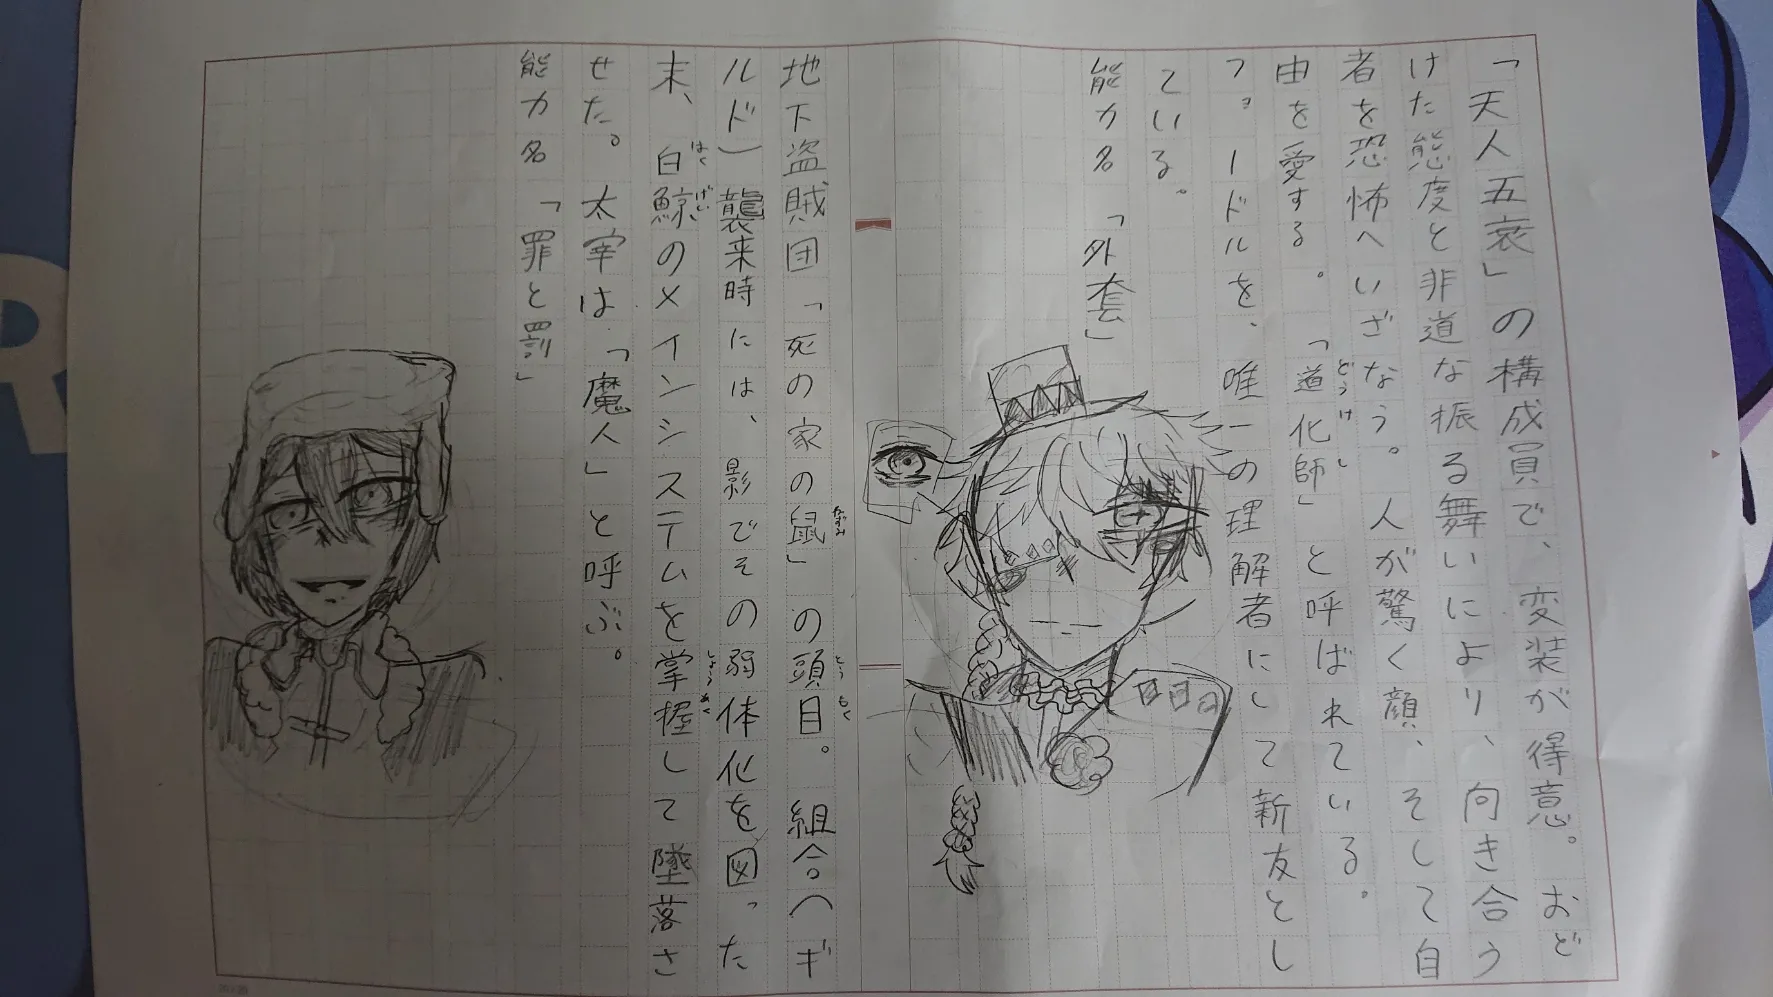 「天人五衰」の構成員で、変装が得意。おど
けた態度と非道な振る舞いにより、向き合う
者を恐怖へいざなう。人が驚く顔、そして自
由を愛する。「道化師」と呼ばれている。
どうけし
フョードルを、唯一の理解者にして新友とし
ている。
能力名「外套」
地下盗賊団「死の家の鼠」の頭目。組合(ギ
ねずみ
とうもく
ルド)襲来時には、影でその弱体化を図った
末、白鯨のメインシステムを掌握して墜落さ
はくげい
しょうあく
せた。太宰は「魔人」と呼ぶ。
能力名「罪と罰」